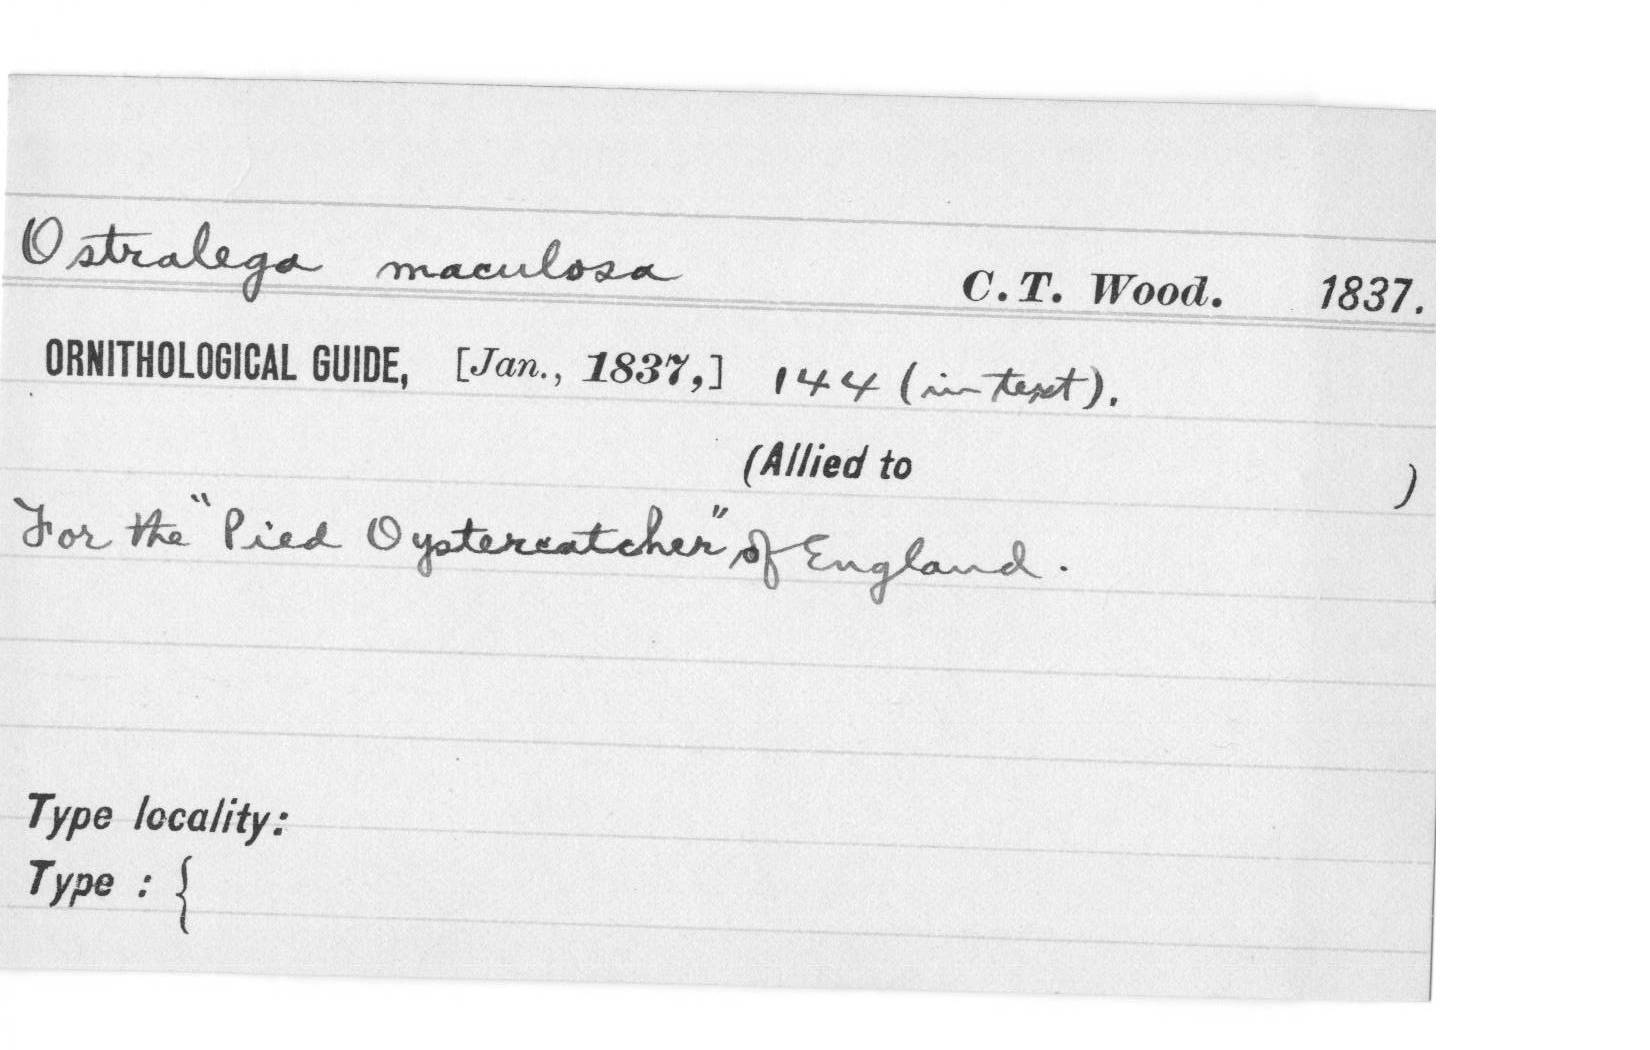 Ostralega maculosa C. T. Wood. 1837.
ORNITHOLOGICAL GUIDE, [Jan., 1837,] 144 (in text).
(Allied to )
For the "Pied Oystercatcher" of England.
Type locality:
Type : {